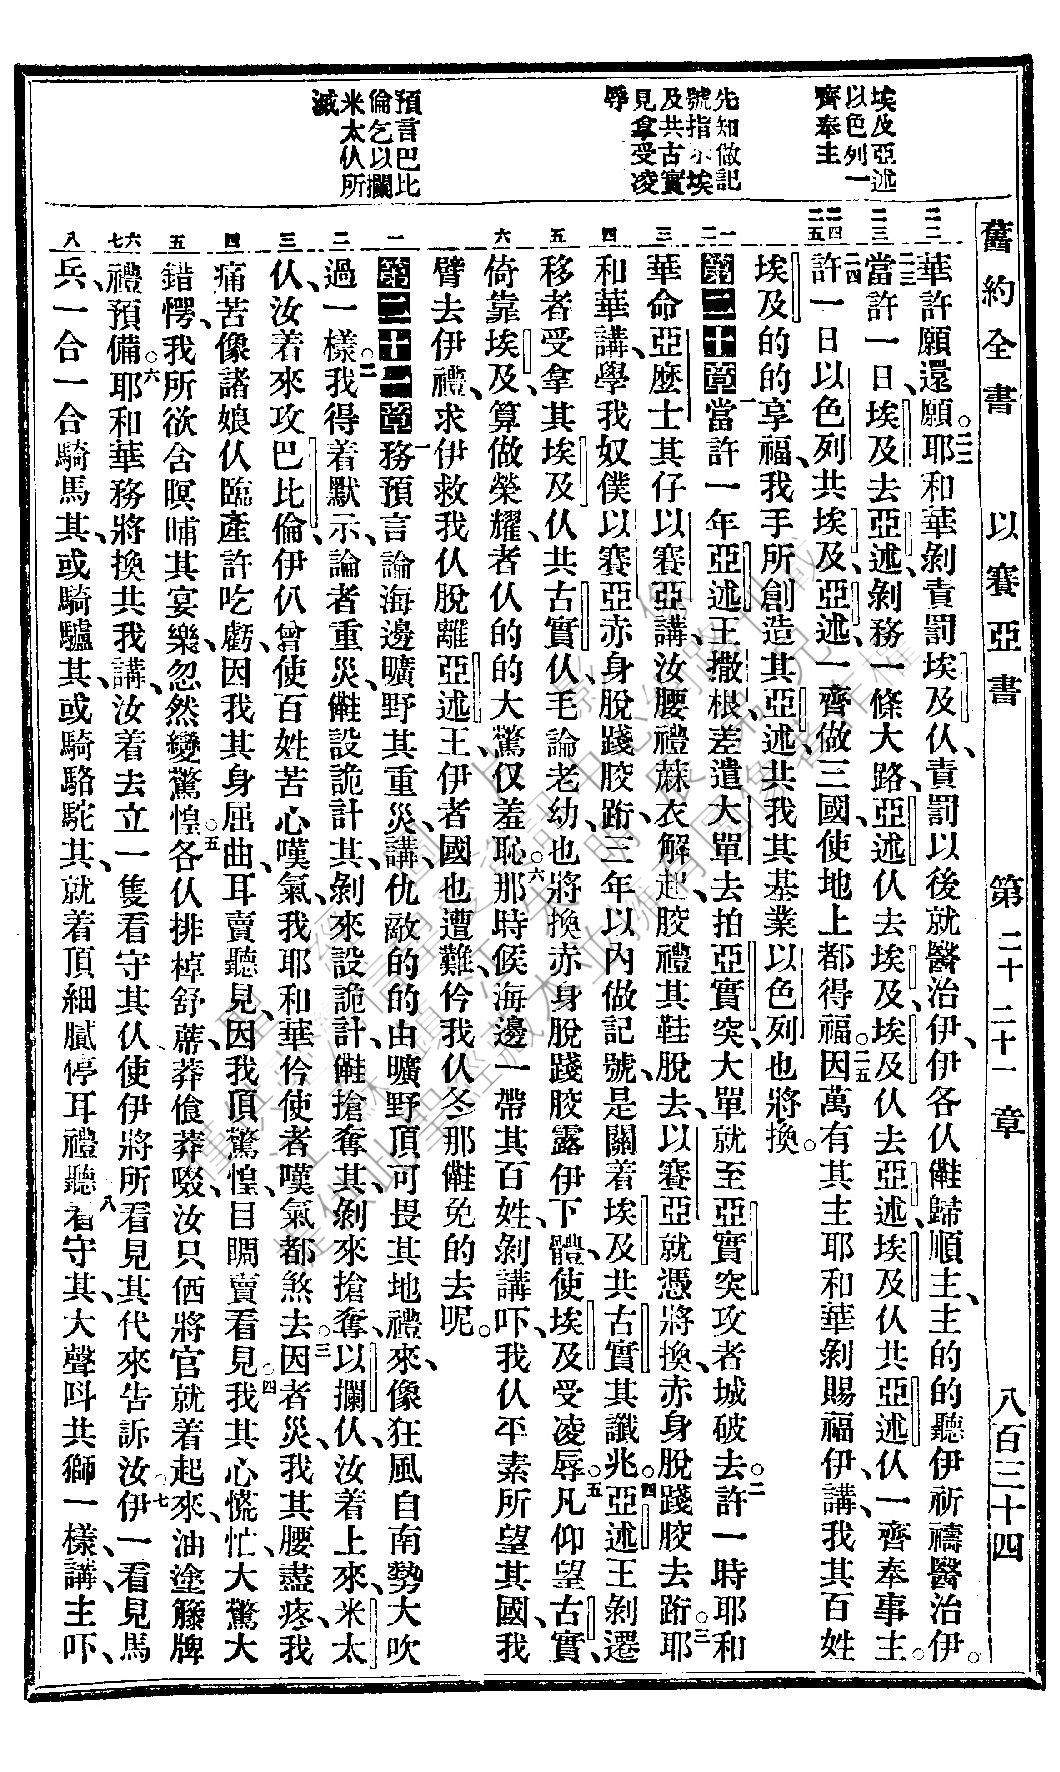 舊約全書 以賽亞書 第二十 二十一章 八百三十四
埃及亞述
以色列一
齊奉主
先知做記
號指示埃
及共古實
見拿受凌
辱
預言巴比
倫乞以攔
米太仈所
滅
華許願還願。二二耶和華剝責罰埃及仈、責罰以後就醫治伊、伊各仈離歸順主、主的的聽伊祈禱醫治伊。
二三當許一日、埃及去亞述、剝務一條大路、亞述仈去埃及、埃及仈去亞述、埃及仈共亞述仈一齊奉事主。
二四許一日以色列共埃及、亞述、一齊做三國、使地上都得福。二五因萬有其主耶和華剝賜福伊、講、我其百姓
埃及的的享福、我手所創造其亞述、共我其基業以色列也將換。
第二十章 一當許一年、亞述王撒根、差遣大單去拍亞實突、大單就至亞實突攻者城破去。二許一時耶和
華命亞麼士其仔以賽亞講、汝腰禮蔴衣解起、骹禮其鞋脫去、以賽亞就憑將換、赤身脫踐骹去跴。三耶
和華講、學我奴僕以賽亞赤身脫踐骹跴三年以內做記號、是關着埃及共古實其讖兆。四亞述王剝遷
移者受拿其埃及仈共古實仈、毛論老幼、也將換赤身脫踐骹露伊下體、使埃及受凌辱。五凡仰望古實、
倚靠埃及、算做榮耀者仈的的大驚仅羞恥。六那時候、海邊一帶其百姓、剝講吓、我仈平素所望其國、我
臂去伊禮、求伊救我仈脫離亞述王、伊者國也遭難、伶我仈冬那離免的去呢。
第二十一章 一務預言論海邊曠野其重災、講、仇敵的的由曠野頂可畏其地禮來、像狂風自南勢大吹
過一樣。二我得着默示、論者重災、離設詭計其、剝來設詭計、離搶奪其、剝來搶奪、以攔仈、汝着上來、米太
仈、汝着來攻巴比倫、伊仈曾使百姓苦心嘆氣、我耶和華伶使者嘆氣都煞去。三因者災、我其腰盡疼、我
痛苦像諸娘仈臨產許吃虧、因我其身屈曲、耳賣聽見、因我頂驚惶、目睭賣看見。四我其心慌忙、大驚大
錯愕、我所欲含暝晡其宴樂、忽然變驚惶。五各仈排棹舒蓆莽飡莽啜、汝只𠉁將官就着起來、油塗籐牌
禮預備。六耶和華務將換共我講、汝着去立一隻看守其仈、使伊將所看見其代來告訴汝。七伊一看見馬
兵一合一合騎馬其、或騎驢其、或騎駱駝其、就着頂細膩停耳禮聽。八看守其、大聲呌共獅一樣、講、主吓、